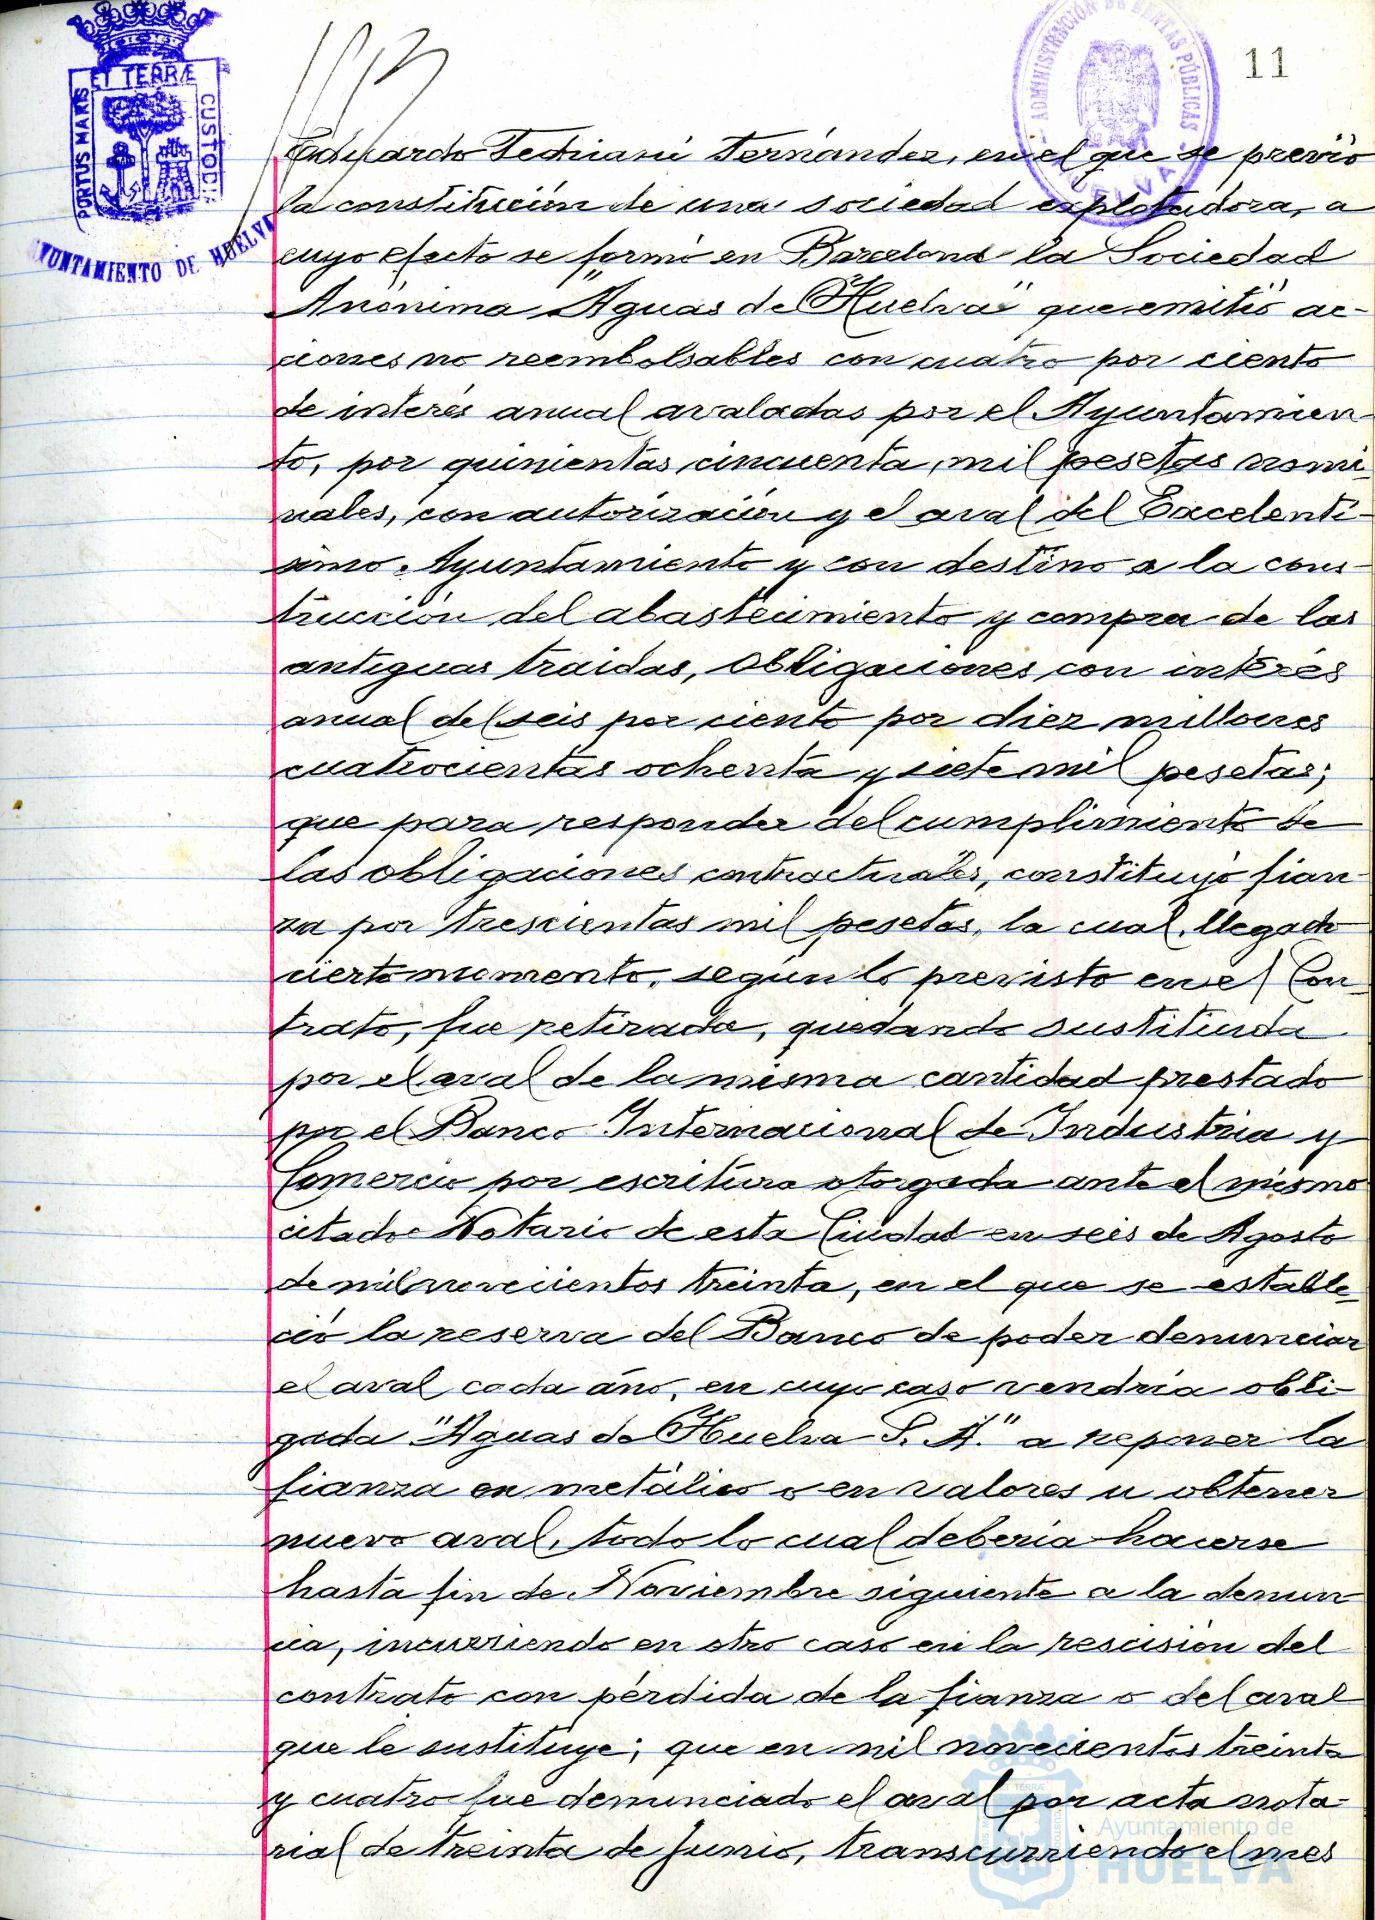 11
PORTUS MARIS ET TERRÆ CUSTODIA
AYUNTAMIENTO DE HUELVA
ADMINISTRACIÓN DE RENTAS PÚBLICAS
HUELVA
Eduardo Fernández, en el que se previó
la constitución de una sociedad explotadora, a
cuyo efecto se formó en Barcelona la Sociedad
Anónima "Aguas de Huelva" que emitió ac-
ciones no reembolsables con cuatro por ciento
de interés anual avaladas por el Ayuntamien-
to, por quinientas cincuenta mil pesetas nomi-
nales, con autorización y el aval del Excelentí-
simo Ayuntamiento y con destino a la cons-
trucción del abastecimiento y compra de las
antiguas traidas, obligaciones con interés
anual del seis por ciento por diez millones
cuatrocientas ochenta y siete mil pesetas;
que para responder del cumplimiento de
las obligaciones contractuales, constituyó fian-
za por trescientas mil pesetas, la cual, llegado
cierto momento, según lo previsto en el Con-
trato, fue retirada, quedando sustituida
por el aval de la misma cantidad prestado
por el Banco Internacional de Industria y
Comercio por escritura otorgada ante el mismo
citado Notario de esta Ciudad en seis de Agosto
de mil novecientos treinta, en el que se estable-
ció la reserva del Banco de poder denunciar
el aval cada año, en cuyo caso vendría obli-
gada "Aguas de Huelva S. A." a reponer la
fianza en metálico o en valores u obtener
nuevo aval, todo lo cual debería hacerse
hasta fin de Noviembre siguiente a la denun-
cia, incurriendo en otro caso en la rescisión del
contrato con pérdida de la fianza o del aval
que le sustituye; que en mil novecientos treinta
y cuatro fue denunciado el aval por acta nota-
rial de treinta de Junio, transcurriendo el mes
Ayuntamiento de
HUELVA